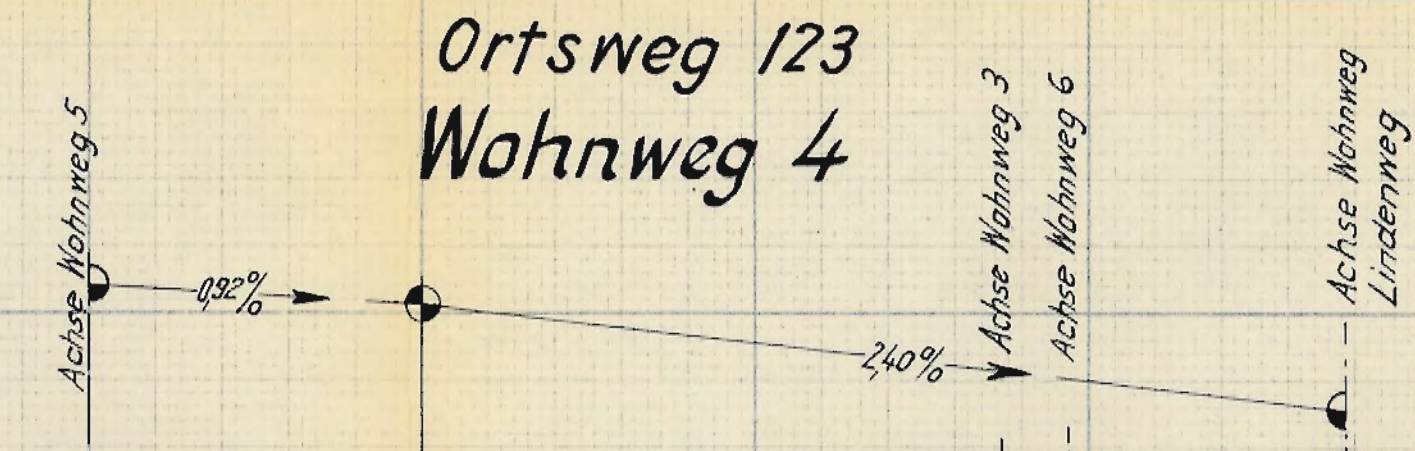 Ortsweg 123
Wohnweg 4
Achse Wohnweg 5
0,92%
2,40%
Achse Wohnweg 3
Achse Wohnweg 6
Achse Wohnweg
Lindenweg